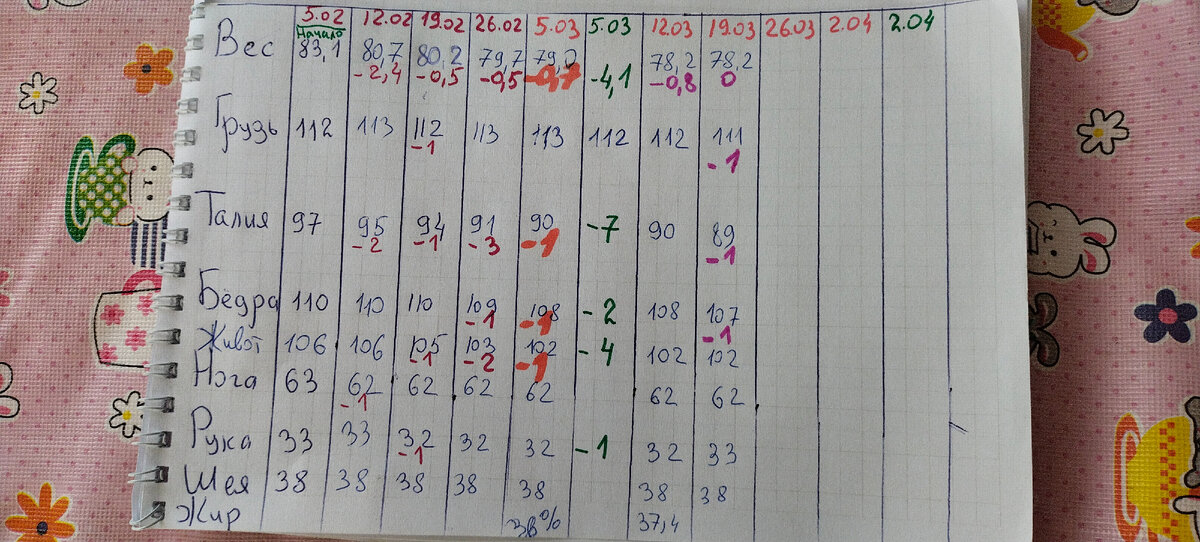 5.02 12.02 19.02 26.02 5.03 5.03 12.03 19.03 26.03 2.04 2.04
Начало
Вес 83,1 80,7 80,2 79,7 79,0 78,2 78,2
-2,4 -0,5 -0,5 -0,7 -4,1 -0,8 0
Грудь 112 113 112 113 113 112 112 111
-1 -1
Талия 97 95 94 91 90 -7 90 89
-2 -1 -3 -1 -1
Бёдра 110 110 110 109 108 -2 108 107
-1 -1 -1
Живот 106 106 105 103 102 -4 102 102
-1 -2 -1
Нога 63 62 62 62 62 62 62
-1
Рука 33 33 32 32 32 -1 32 33
-1
Шея 38 38 38 38 38 38 38
Жир 38% 37,4